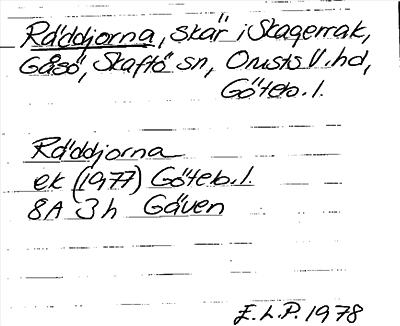 Räddjorna, skär i Skagerrak,
Gåsö, Skaftö sn, Orusts V. hd,
Göteb. l.
Räddjorna
ek (1977) Göteb. l.
8A 3h Gåven
E.L.P. 1978